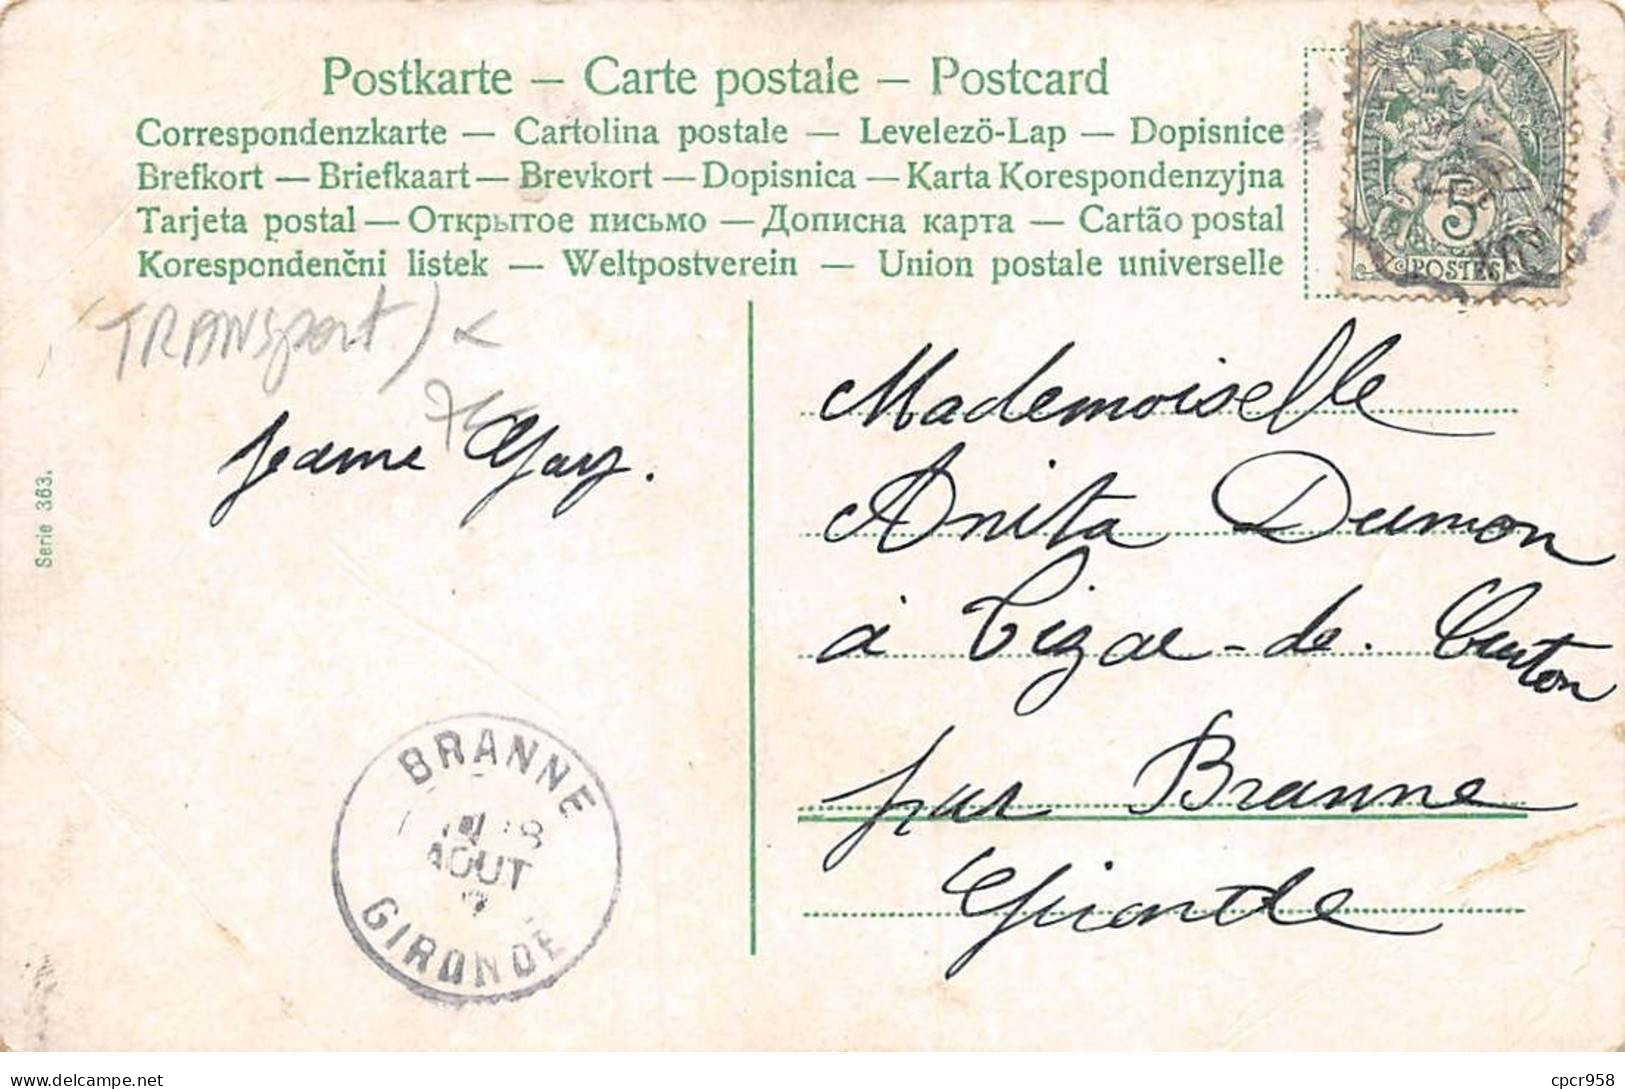 Postkarte — Carte postale — Postcard
Correspondenzkarte — Cartolina postale — Levelezö-Lap — Dopisnice
Brefkort — Briefkaart — Brevkort — Dopisnica — Karta Korespondenzyjna
Tarjeta postal — Открытое письмо — Дописна карта — Cartão postal
Korespondenčni listek — Weltpostverein — Union postale universelle
5
POSTES
TRANSport)
Jeanne Gay.
Serie 363.
Mademoiselle
Anita Dumon
à Tizac-de-Curton
par Branne
Gironde
BRANNE
8
AOUT
GIRONDE
delcampe.net
cpcr958